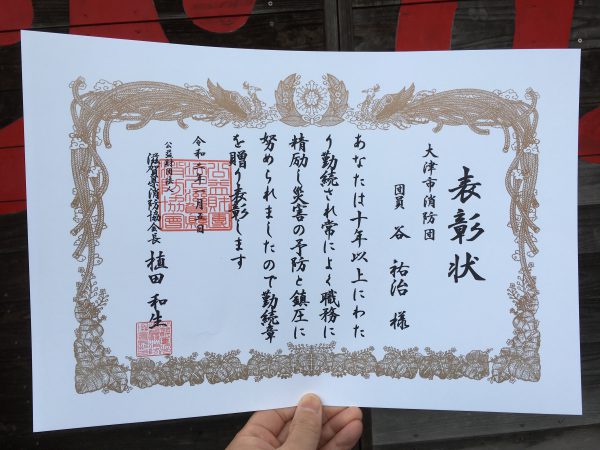 表彰状
大津市消防団
団員 谷 祐治 様
あなたは十年以上にわた
り勤続され常によく職務に
精励し災害の予防と鎮圧に
努められましたので勤続章
を贈り表彰します
令和 年 月 日
公益財団法人
滋賀県消防協会長 植田 和生